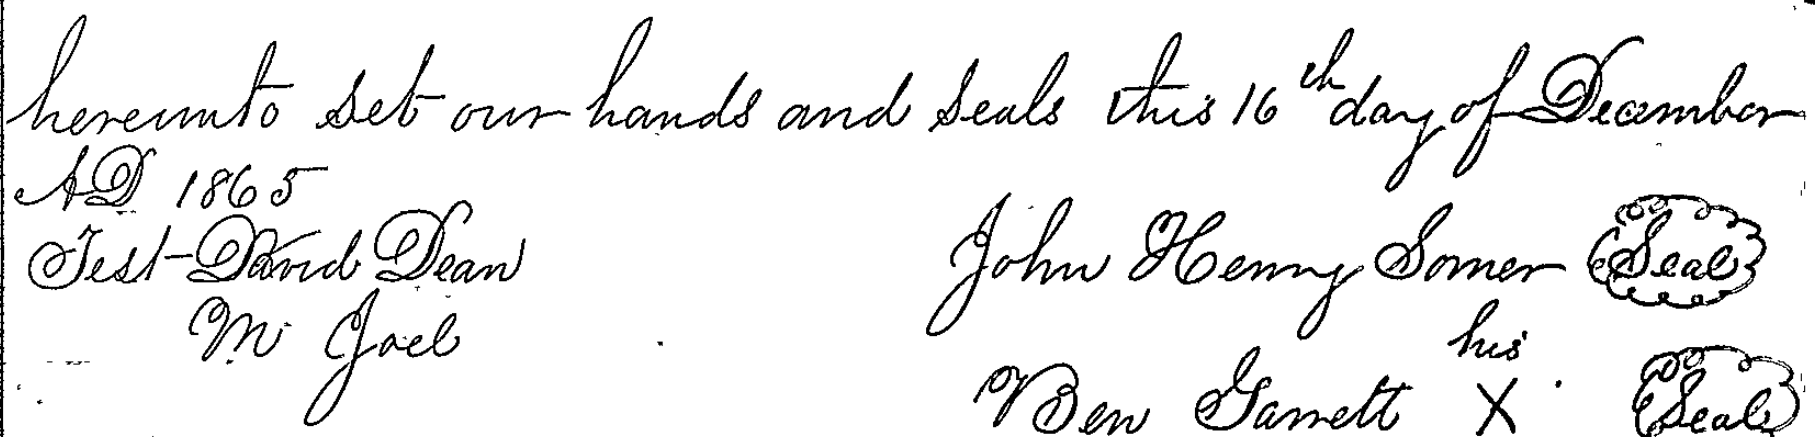 hereunto set our hands and seals this 16th day of December
AD 1865
Test- David Dean John Henry Somer Seal
M Joel
his
Ben Garrett X Seal